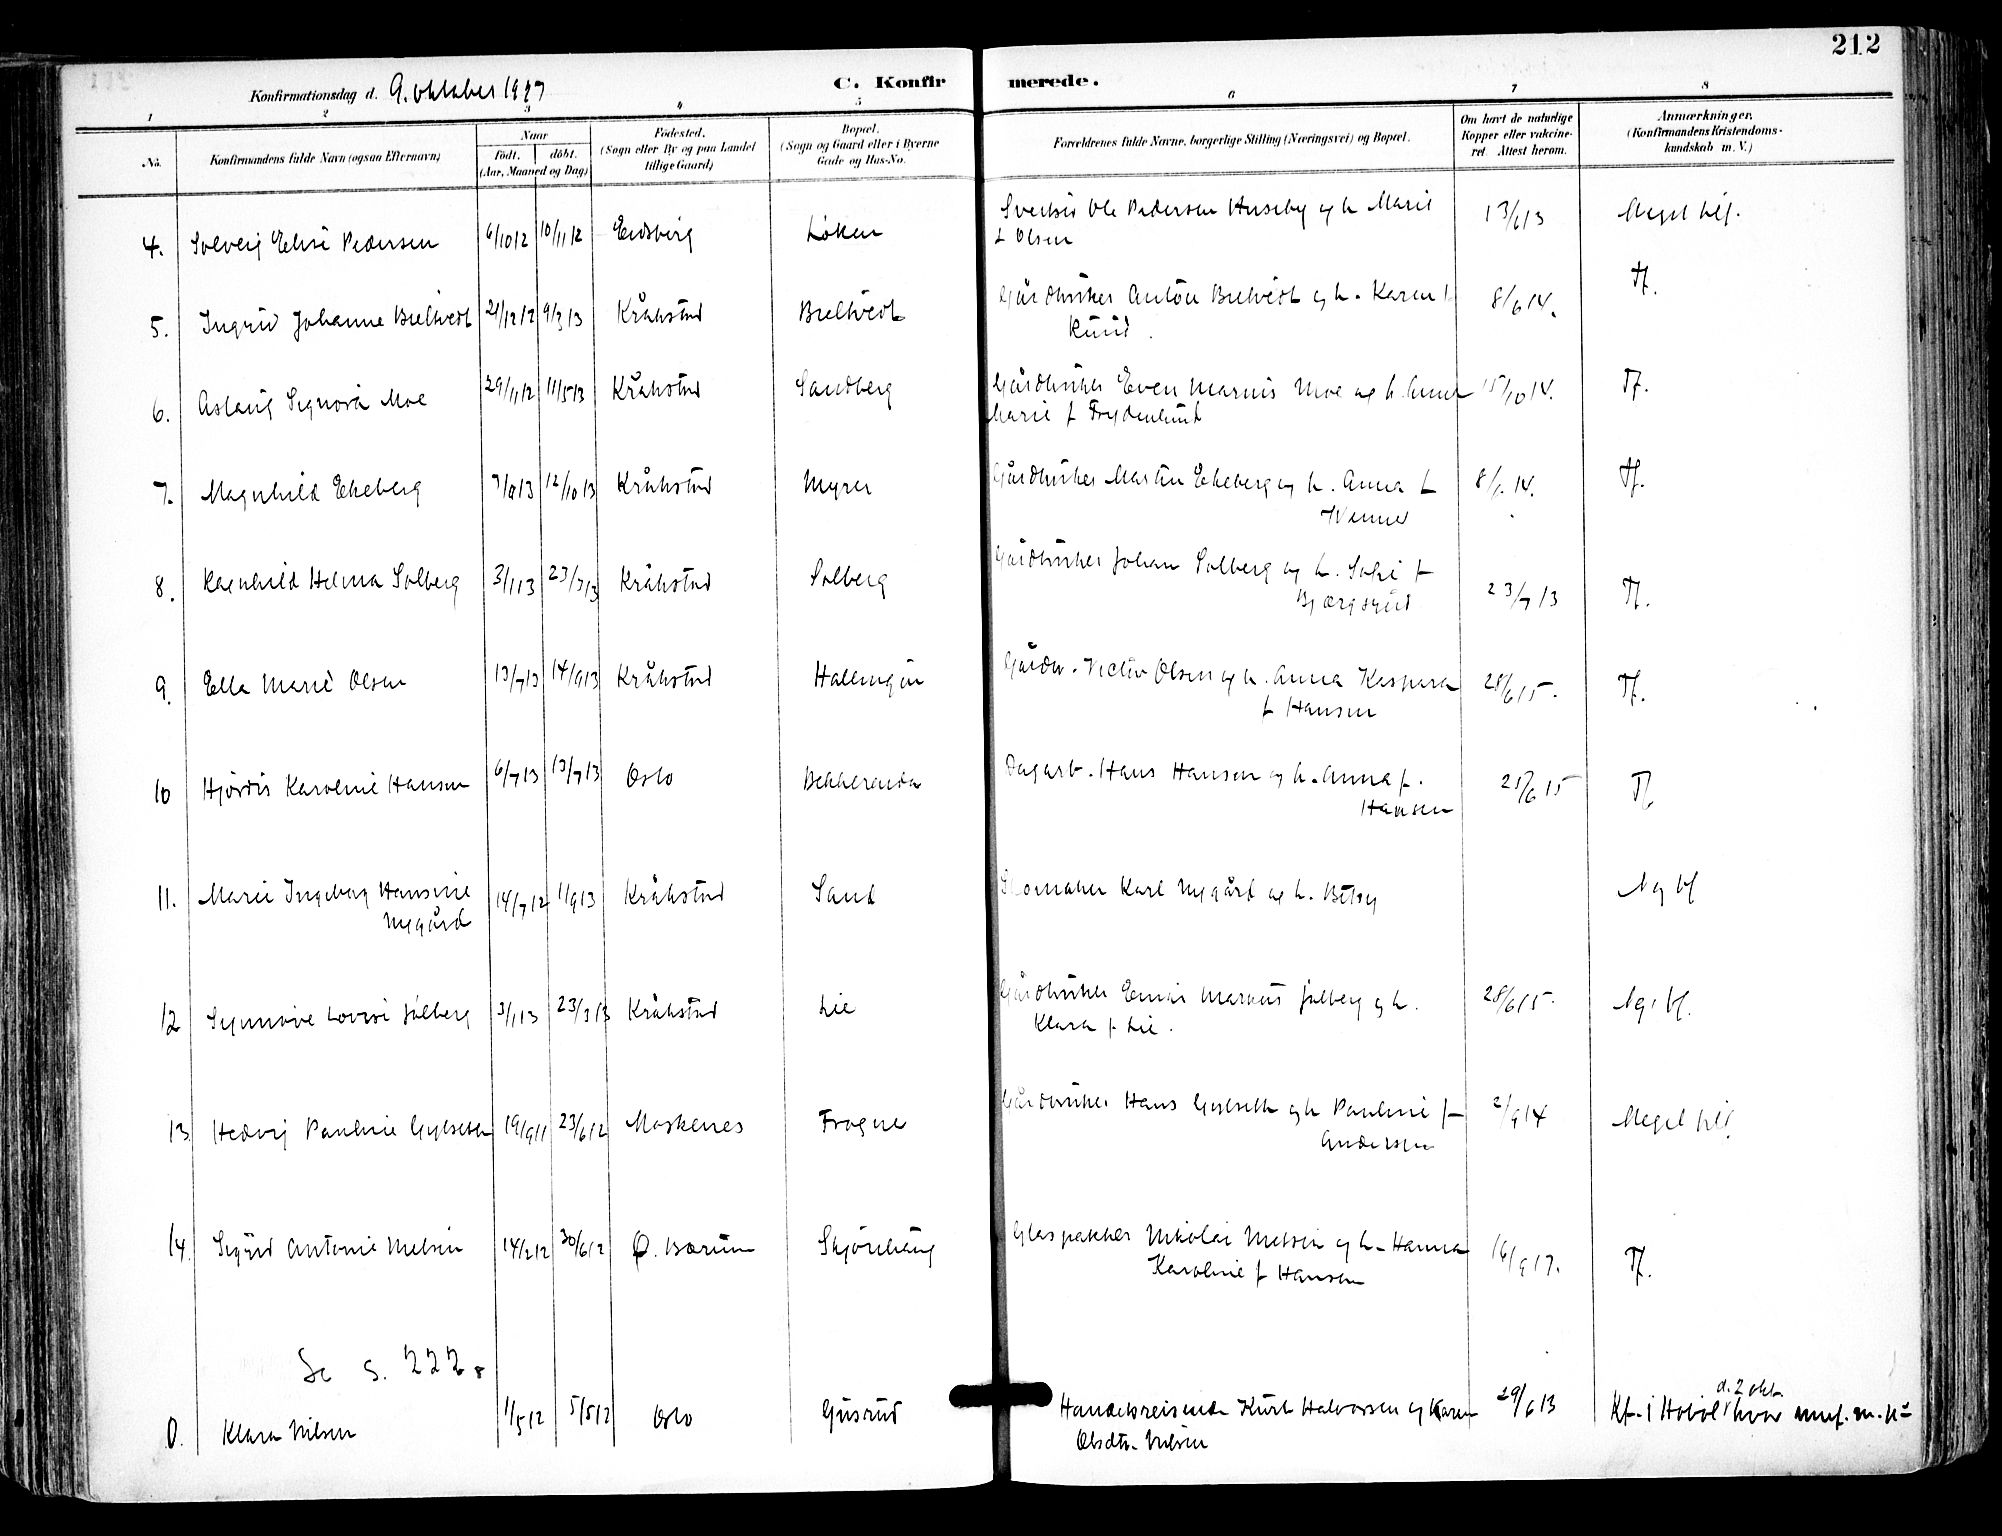 212
Konfirmationsdag d. 9. oktober 1927
C. Konfirmerede.
1 2 3 4 5 6 7 8
No.
Konfirmandens fulde Navn (ogsaa Efternavn)
Naar
født. døbt.
(Aar, Maaned og Dag)
Fødested.
(Sogn eller By og paa Landet
tillige Gaard)
Bopæl.
(Sogn og Gaard eller i Byerne
Gade og Hus-No.
Forældrenes fulde Navne, borgerlige Stilling (Næringsvei) og Bopæl.
Om havt de naturlige
Kopper eller vakcine-
ret. Attest herom.
Anmærkninger.
(Konfirmandens Kristendoms-
kundskab m. V.)
4. Solveig Elise Pedersen 6/10 12 10/11 12 Eidsberg Løken Ole Pedersen Huseby og h. Marit
f. Olsen 13/6 13 Meget tilf.
5. Ingrid Johanne Breltvedt 21/12 12 9/3 13 Kråkstad Breltvedt Gårdbruker Anton Breltvedt og h. Karen f.
8/6 14. Tf.
6. Aslaug Signora Moe 29/11 12 11/5 13 Kråkstad Sandberg Gårdbruker Even Marius Moe og h. Anna
Marie f. Frydenlund 15/10 14. Tf.
7. Magnhild Ekeberg 7/9 13 12/10 13 Kråkstad Myrer Gårdbruker Martin Ekeberg og h. Anna f.
Tf.
8. Ragnhild Helma Solberg 3/1 13 23/3 13 Kråkstad Solberg Gårdbruker Johan Solberg og h. Sofie f.
23/7 13 Tf.
9. Ella Marie Olsen 13/7 13 14/9 13 Kråkstad Gårdbr. Victor Olsen og h. Anna Kaspara
f. Hansen 28/6 15. Tf.
10 Hjørdis Karoline Hansen 6/7 13 13/7 13 Oslo Dagarb. Hans Hansen og h. Anna f.
Hansen 25/6 15 Tf.
11. Marie Ingeborg Hansine
Nygård 14/7 12 1/9 13 Kråkstad Sand Skomaker Karl Nygård og h. Betsy Ng tf
12 Synnøve Lovise Julberg 3/1 13 23/3 13 Kråkstad Lie Gårdbruker Einar Markus Julberg og h.
Klara f. Lie. 28/6 15. Ng. tf.
13 Hedvig Pauline Gylseth 19/9 11 23/6 12 Moskenes Frogner Gårdbruker Hans Gylseth og h. Pauline f.
Andersen 2/9 14 Meget tilf.
14. Sigrid Antonie Nielsen 14/2 12 30/6 12 Ø. Bærum Skjørehaug Glaspakker Nikolai Nielsen og h. Hanna
Karoline f. Hansen 16/9 17. Tf.
Se s. 222.
0. Klara Nilsen 1/5 12 5/5 12 Oslo Gusrud Handelsreisende Kurt Halvorsen og Karen
Olsdtr. Nilsen 29/6 13 d. 2 okt.
Kf. i Hobøl hvor